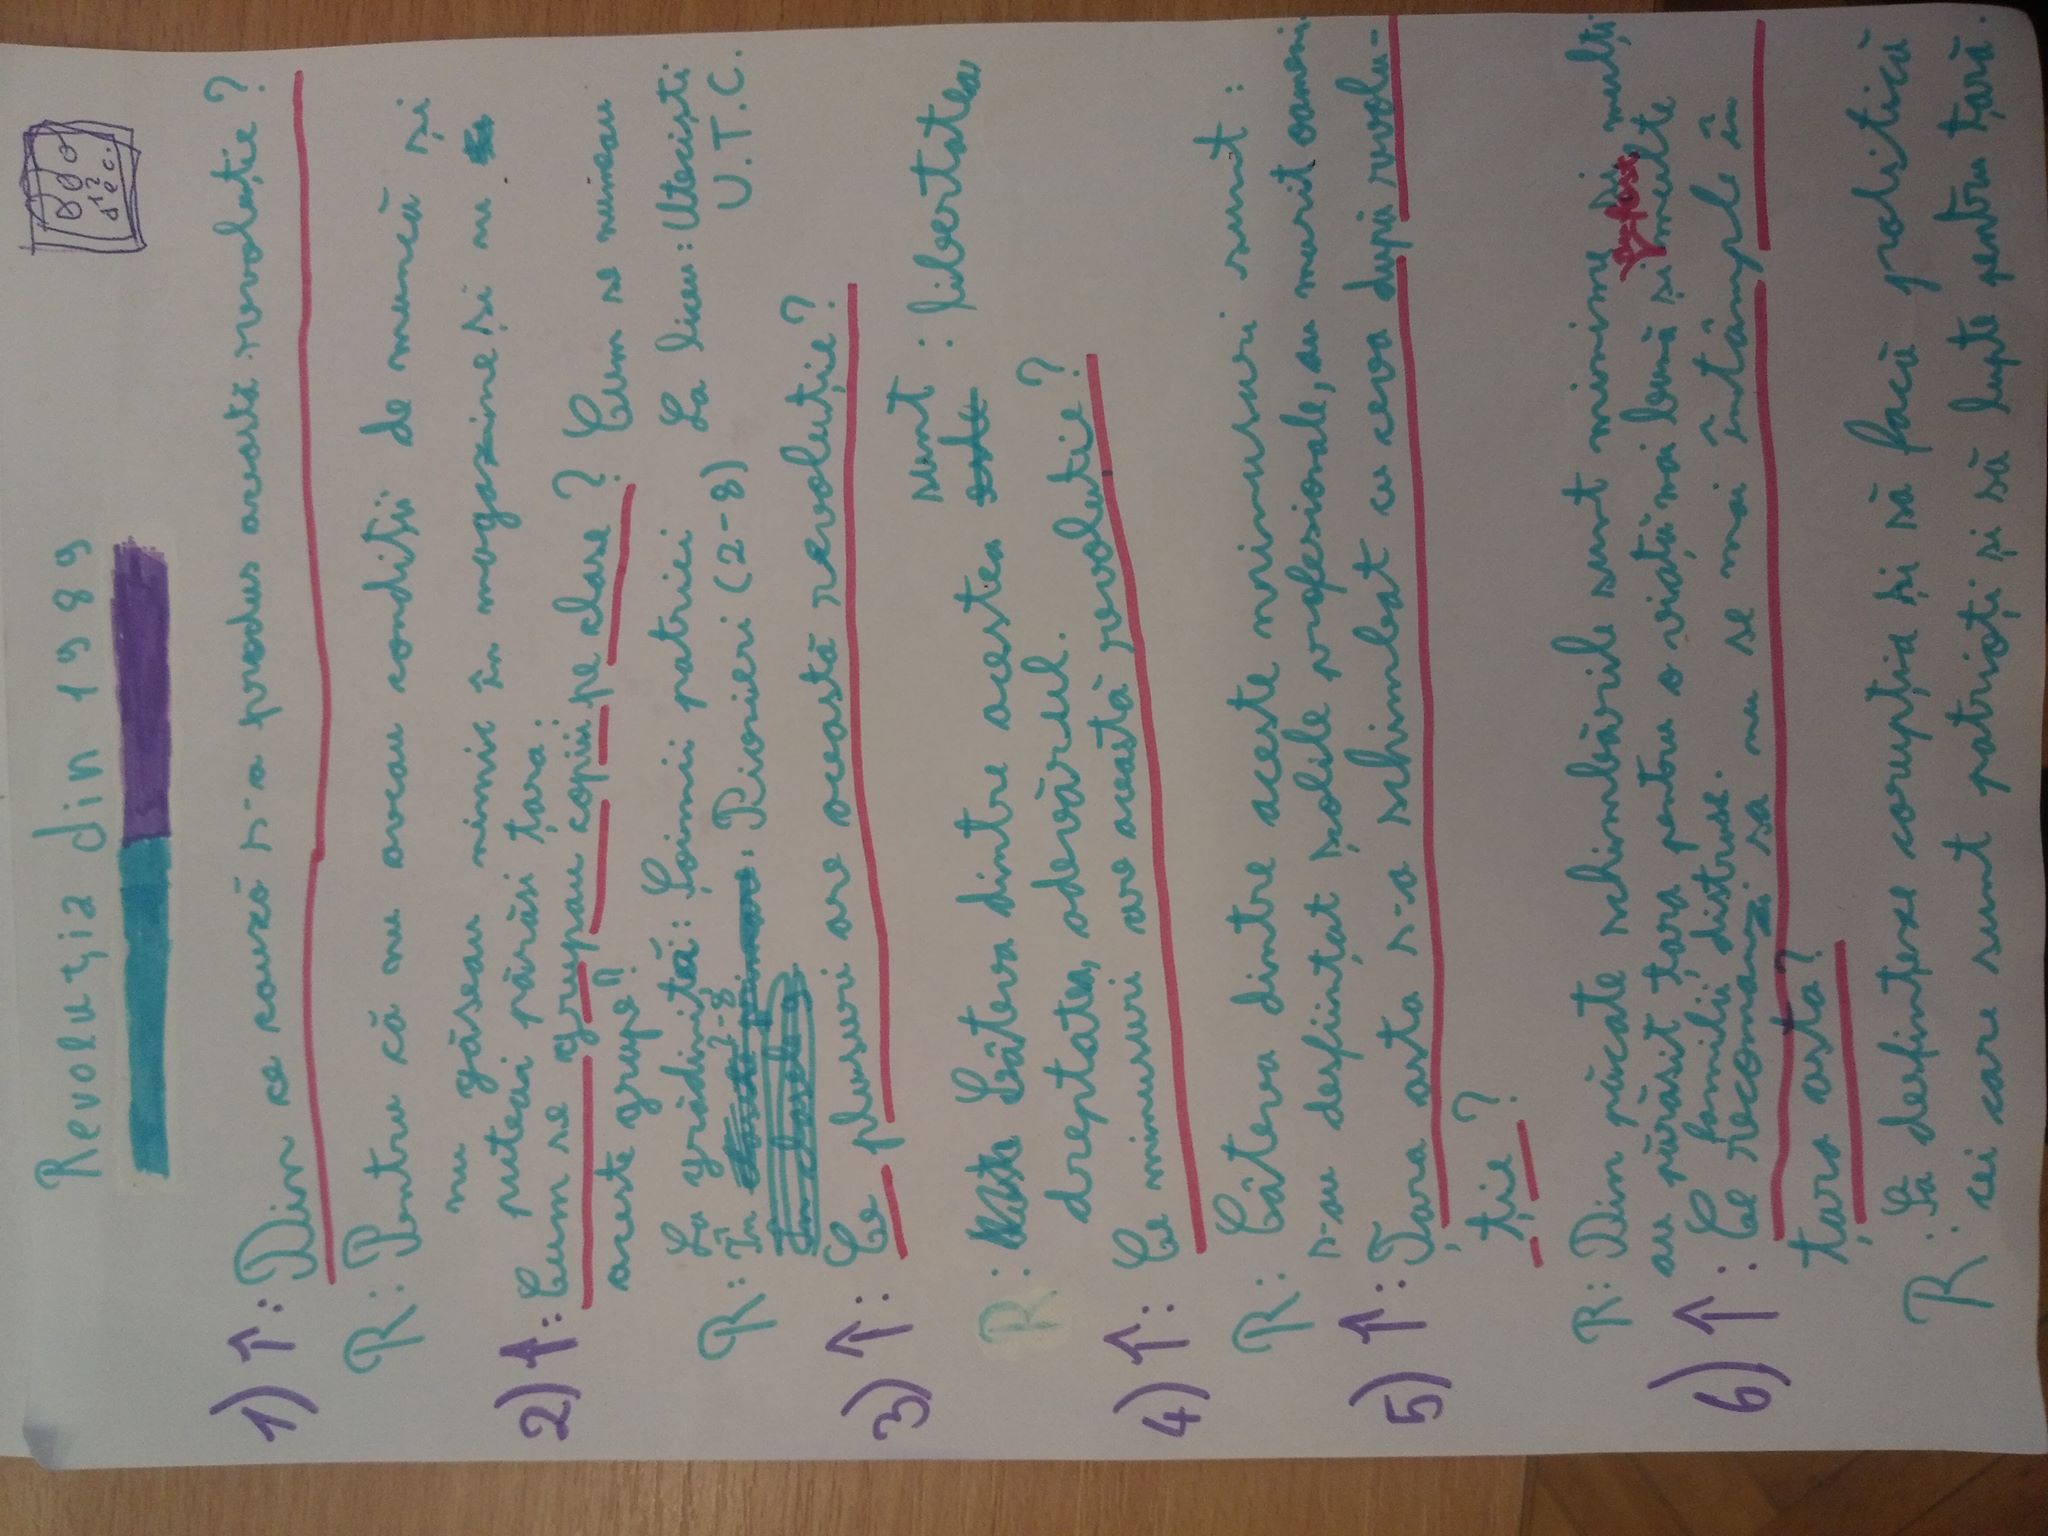 Revoluția din 1989
1) Î: Din ce cauză s-a produs această revoluție?
R: Pentru că nu aveau condiții de muncă și
nu găseau nimic în magazine și nu
puteai părăsi țara.
2) Î: Cum se grupau copiii pe clase? Cum se numeau
aceste grupe?
La grădiniță: Șoimii patriei La liceu: Uteciști
R: În 2-8: Pionieri (2-8) U.T.C.
3) Î: Ce plusuri are această revoluție?
sunt
R: Câteva dintre acestea : libertatea
dreptatea, adevărul.
4) Î: Ce minusuri are această revoluție?
R: Câteva dintre aceste minusuri sunt:
s-au desființat școlile profesionale, au murit oameni
5) Î: Țara asta s-a schimbat cu ceva după revolu-
ție?
R: Din păcate schimbările sunt minime și mulți
au părăsit țara pentru o viață mai bună și multe
familii distruse.
6) Î: Ce recomanzi sa nu se mai întâmple în
țara asta?
R: Să desfinteze corupția și să facă politică
cei care sunt patrioți și să lupte pentru țară.